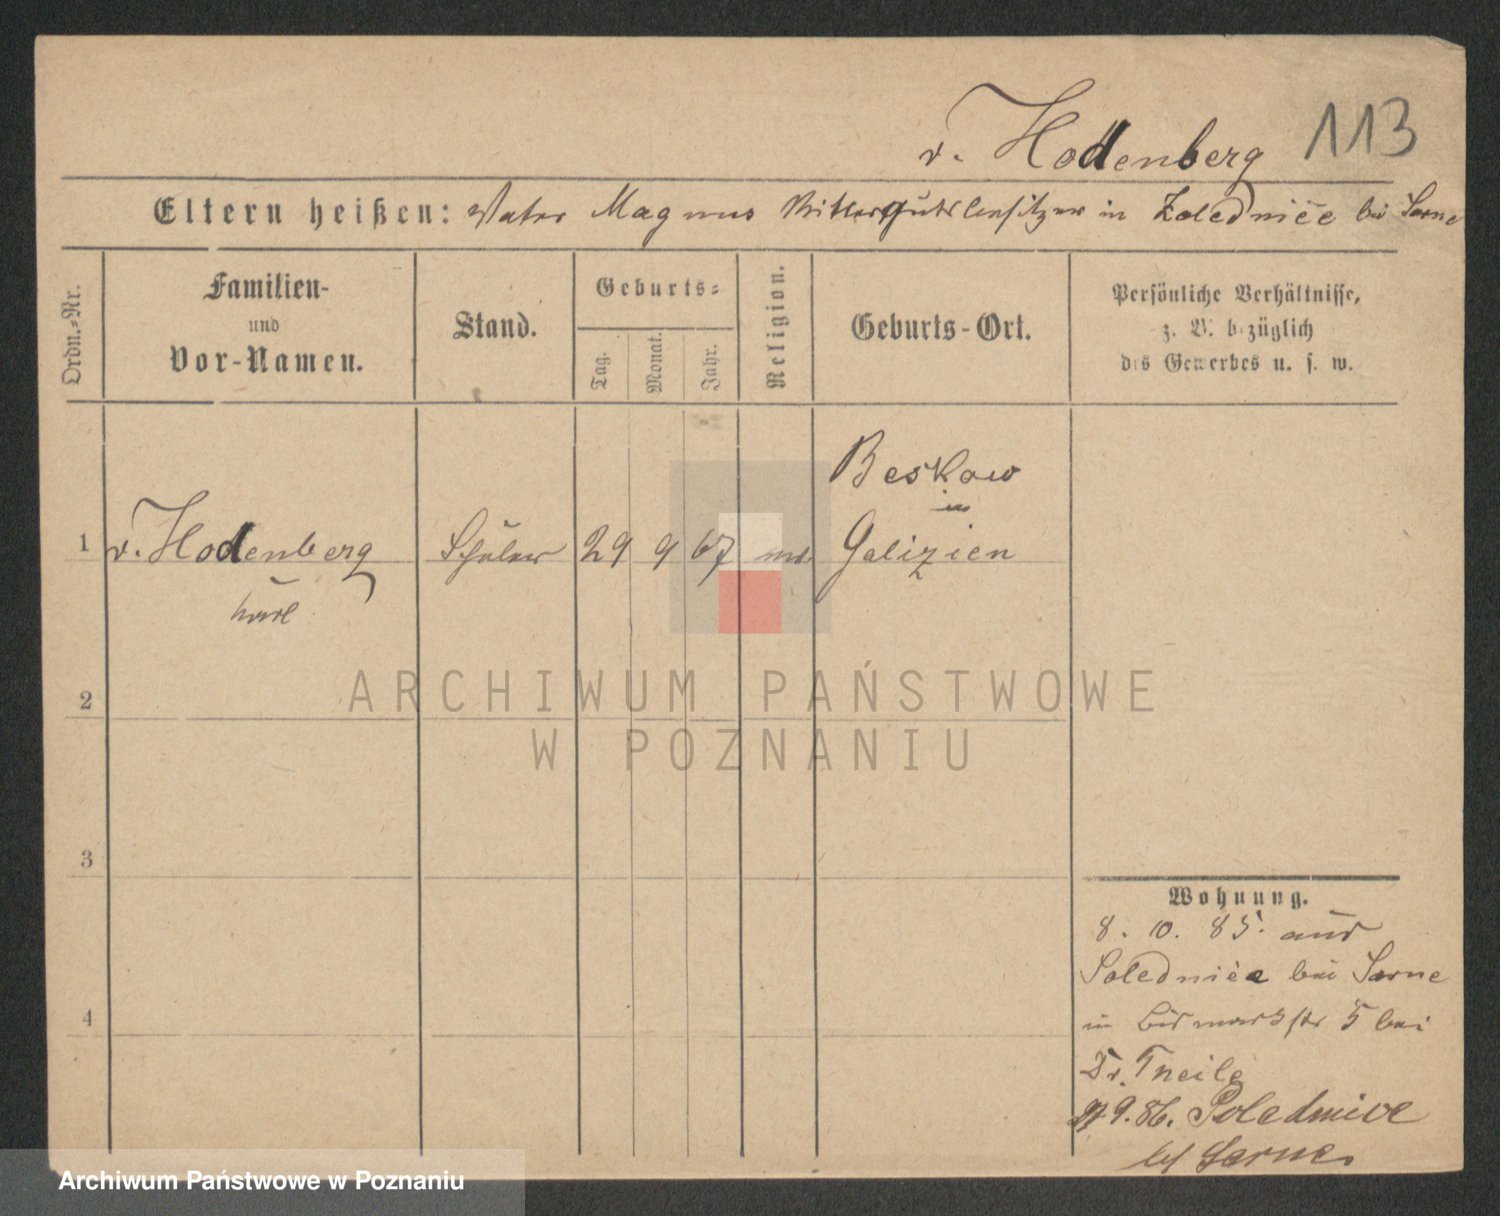 113
v. Hodenberg
Eltern heißen: Vater Magnus Rittergutsbesitzer in Zolednice bei Sarne
Ordn.-Nr.
Familien-
und
Vor-Namen.
Stand.
Geburts-
Tag.
Monat.
Jahr.
Religion.
Geburts-Ort.
Persönliche Verhältnisse,
z. B. bezüglich
des Gewerbes u. s. w.
Beskow
in
1 v. Hodenberg Schüler 29 9 67 Galizien
Karl
2
3
4
Wohnung.
8. 10. 85. aus
Solednice bei Sarne
in Bismarckstr 5 bei
Dr. Theile
9. 86. Polednice
bei Sarne
ARCHIWUM PAŃSTWOWE
W POZNANIU
Archiwum Państwowe w Poznaniu